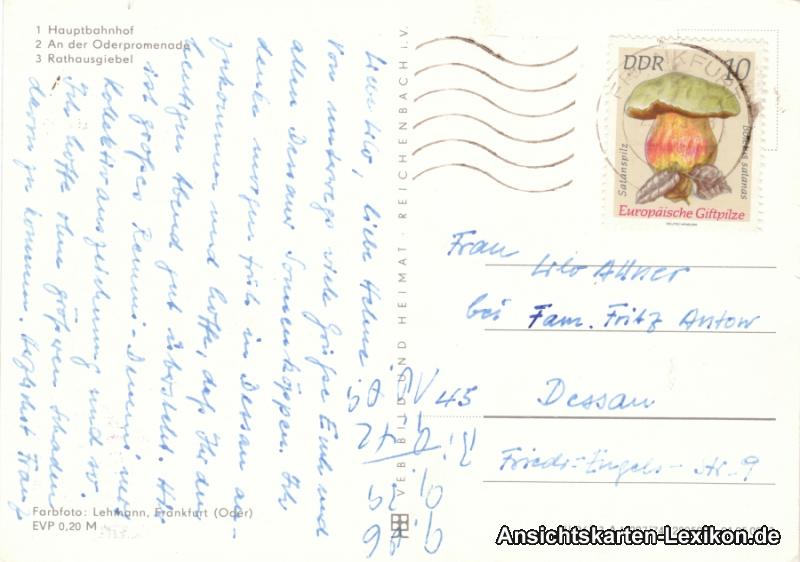 1 Hauptbahnhof
2 An der Oderpromenade
3 Rathausgiebel
Liebe Lilo, liebe Helene
Von unterwegs viele Grüße Euch und
allen Dessauer Sonnenköppen. Ich
denke morgen früh in Dessau an-
zukommen und hoffe, daß Ihr den
heutigen Abend gut übersteht. Hier
ist großes Remmi-Demmi mit
Kollektivauszeichnung und so.
Ich hoffe ohne größeren Schaden
davon zu kommen. Herzlichst Franz
Farbfoto: Lehmann, Frankfurt (Oder)
EVP 0,20 M
VEB BILD UND HEIMAT · REICHENBACH i. V.
DDR 10
Satanspilz
Boletus satanas
Europäische Giftpilze
Frau
Lilo
bei Fam. Fritz Antow
45 Dessau
Friedr.-Engels-Str. 9
Ansichtskarten-Lexikon.de